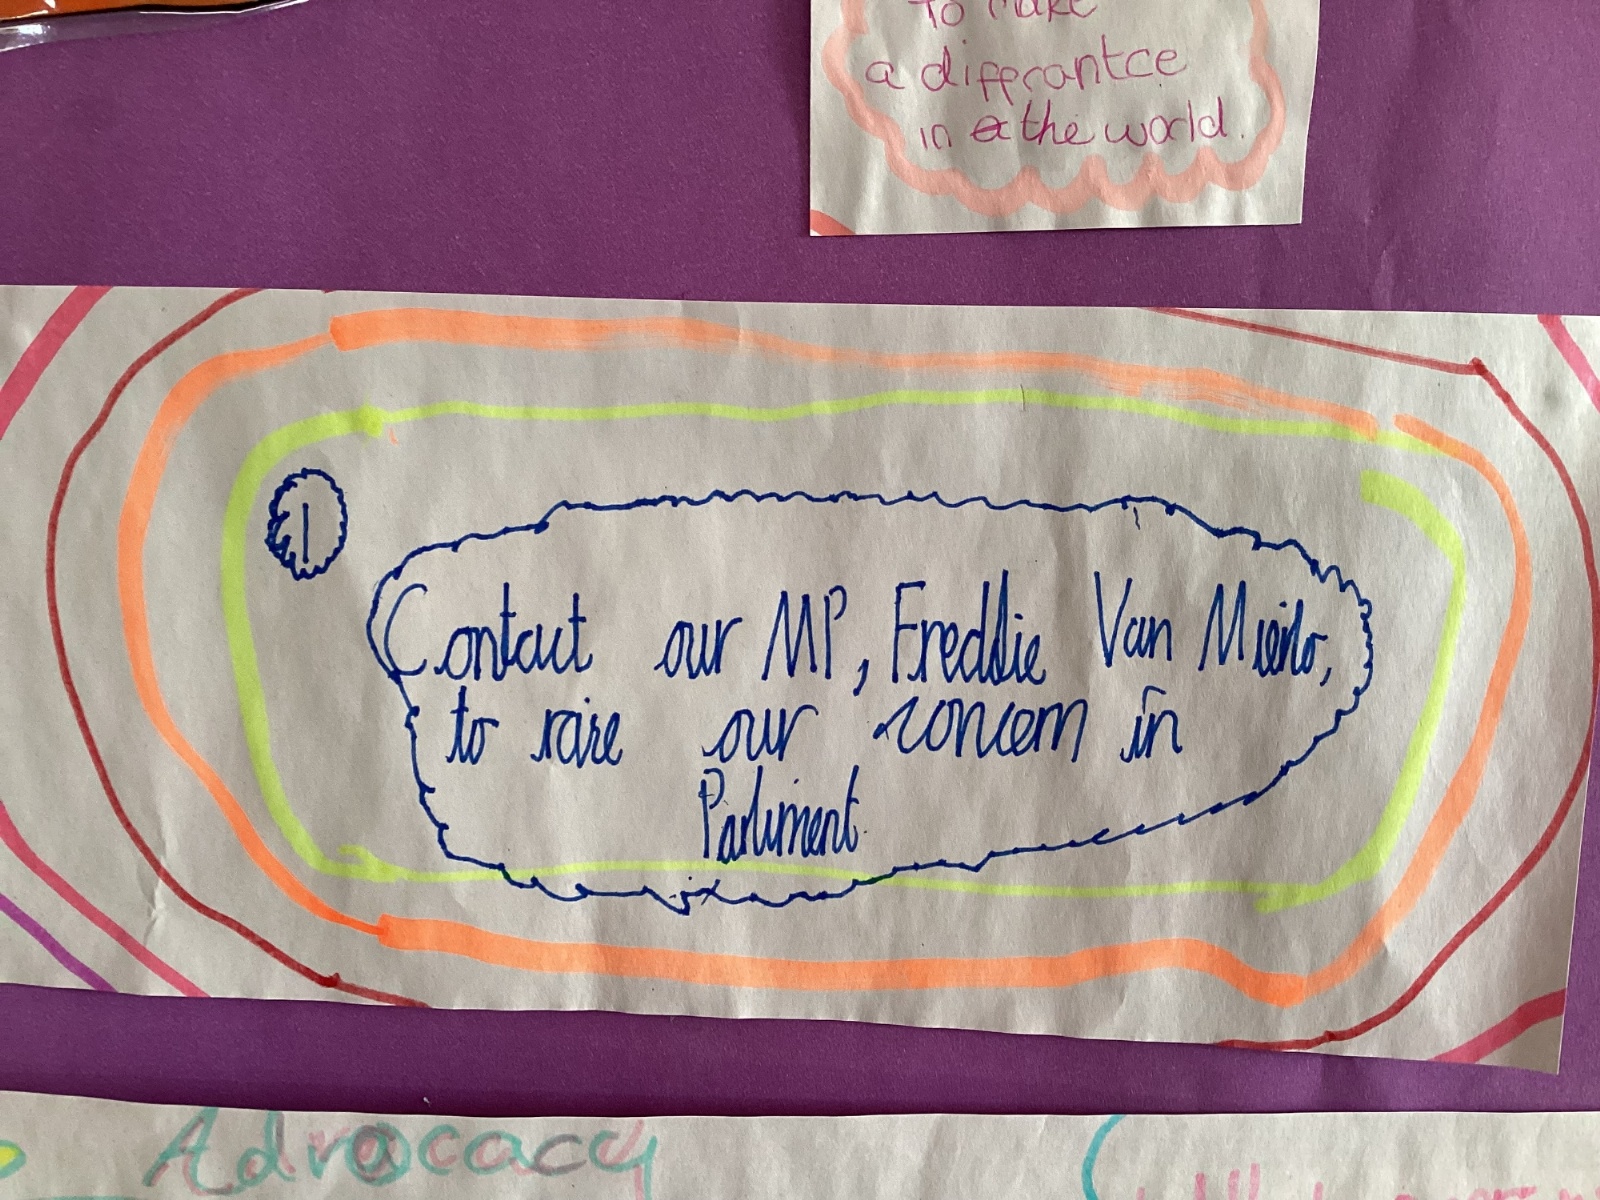 to make
a differantce
in the world.
1
Contact our MP, Freddie Van Mierlo,
to raise our concern in
Parliment.
Advocacy